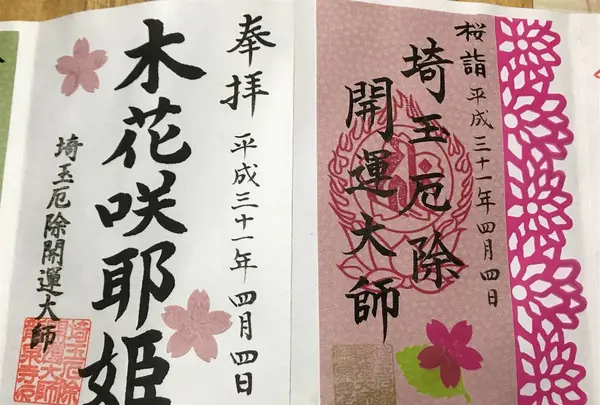 桜詣 平成三十一年四月四日
埼玉厄除
開運大師
奉拝 平成三十一年四月四日
木花咲耶姫
埼玉厄除開運大師